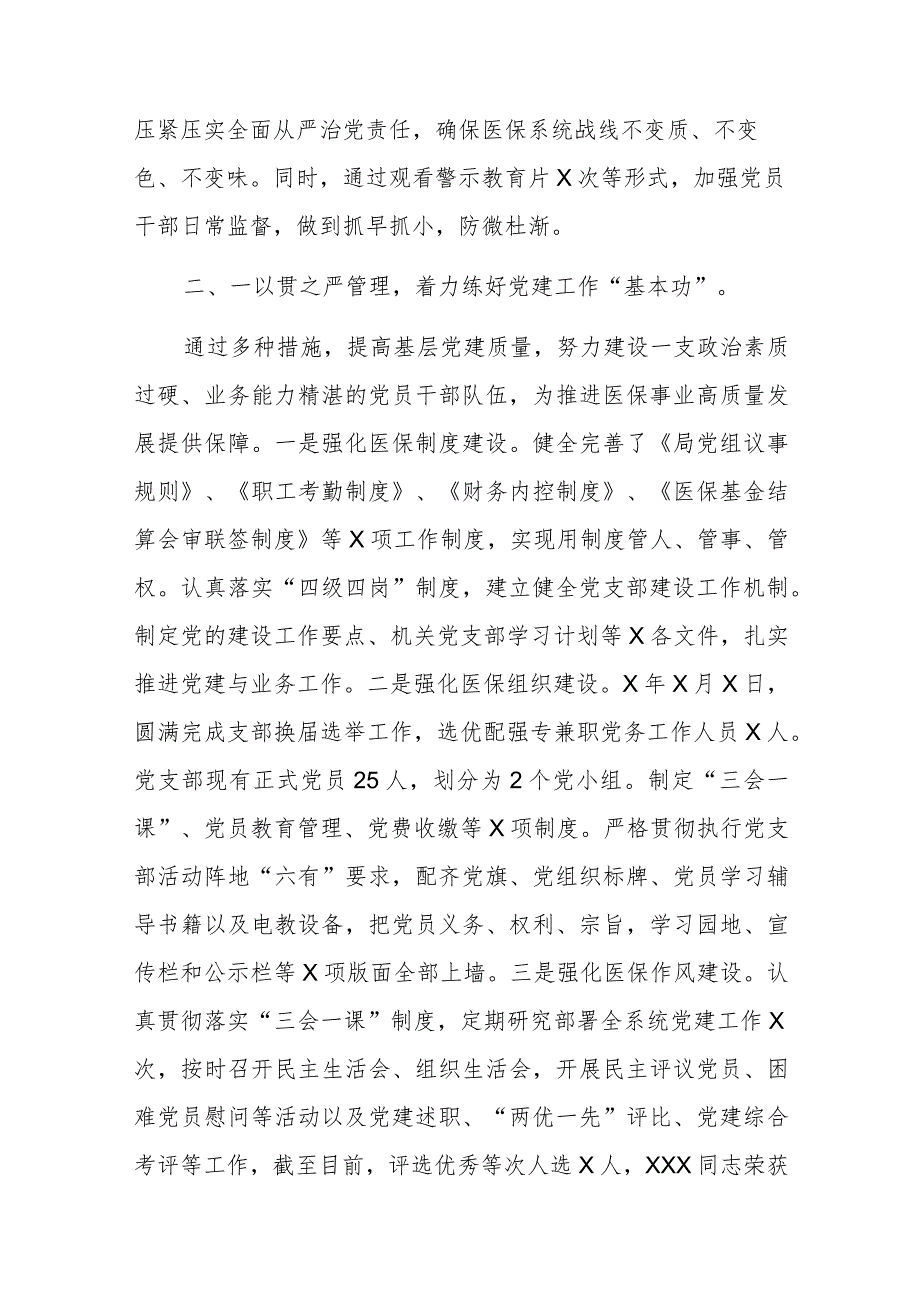 压紧压实全面从严治党责任，确保医保系统战线不变质、不变
色、不变味。同时，通过观看警示教育片X次等形式，加强党员
干部日常监督，做到抓早抓小，防微杜渐。
二、一以贯之严管理，着力练好党建工作“基本功”。
通过多种措施，提高基层党建质量，努力建设一支政治素质
过硬、业务能力精湛的党员干部队伍，为推进医保事业高质量发
展提供保障。一是强化医保制度建设。健全完善了《局党组议事
规则》、《职工考勤制度》、《财务内控制度》、《医保基金结
算会审联签制度》等X项工作制度，实现用制度管人、管事、管
权。认真落实“四级四岗”制度，建立健全党支部建设工作机制。
制定党的建设工作要点、机关党支部学习计划等X各文件，扎实
推进党建与业务工作。二是强化医保组织建设。X年X月X日，
圆满完成支部换届选举工作，选优配强专兼职党务工作人员X人。
党支部现有正式党员25人，划分为2个党小组。制定“三会一
课”、党员教育管理、党费收缴等X项制度。严格贯彻执行党支
部活动阵地“六有”要求，配齐党旗、党组织标牌、党员学习辅
导书籍以及电教设备，把党员义务、权利、宗旨，学习园地、宣
传栏和公示栏等X项版面全部上墙。三是强化医保作风建设。认
真贯彻落实“三会一课”制度，定期研究部署全系统党建工作X
次，按时召开民主生活会、组织生活会，开展民主评议党员、困
难党员慰问等活动以及党建述职、“两优一先”评比、党建综合
考评等工作，截至目前，评选优秀等次人选X人，XXX同志荣获